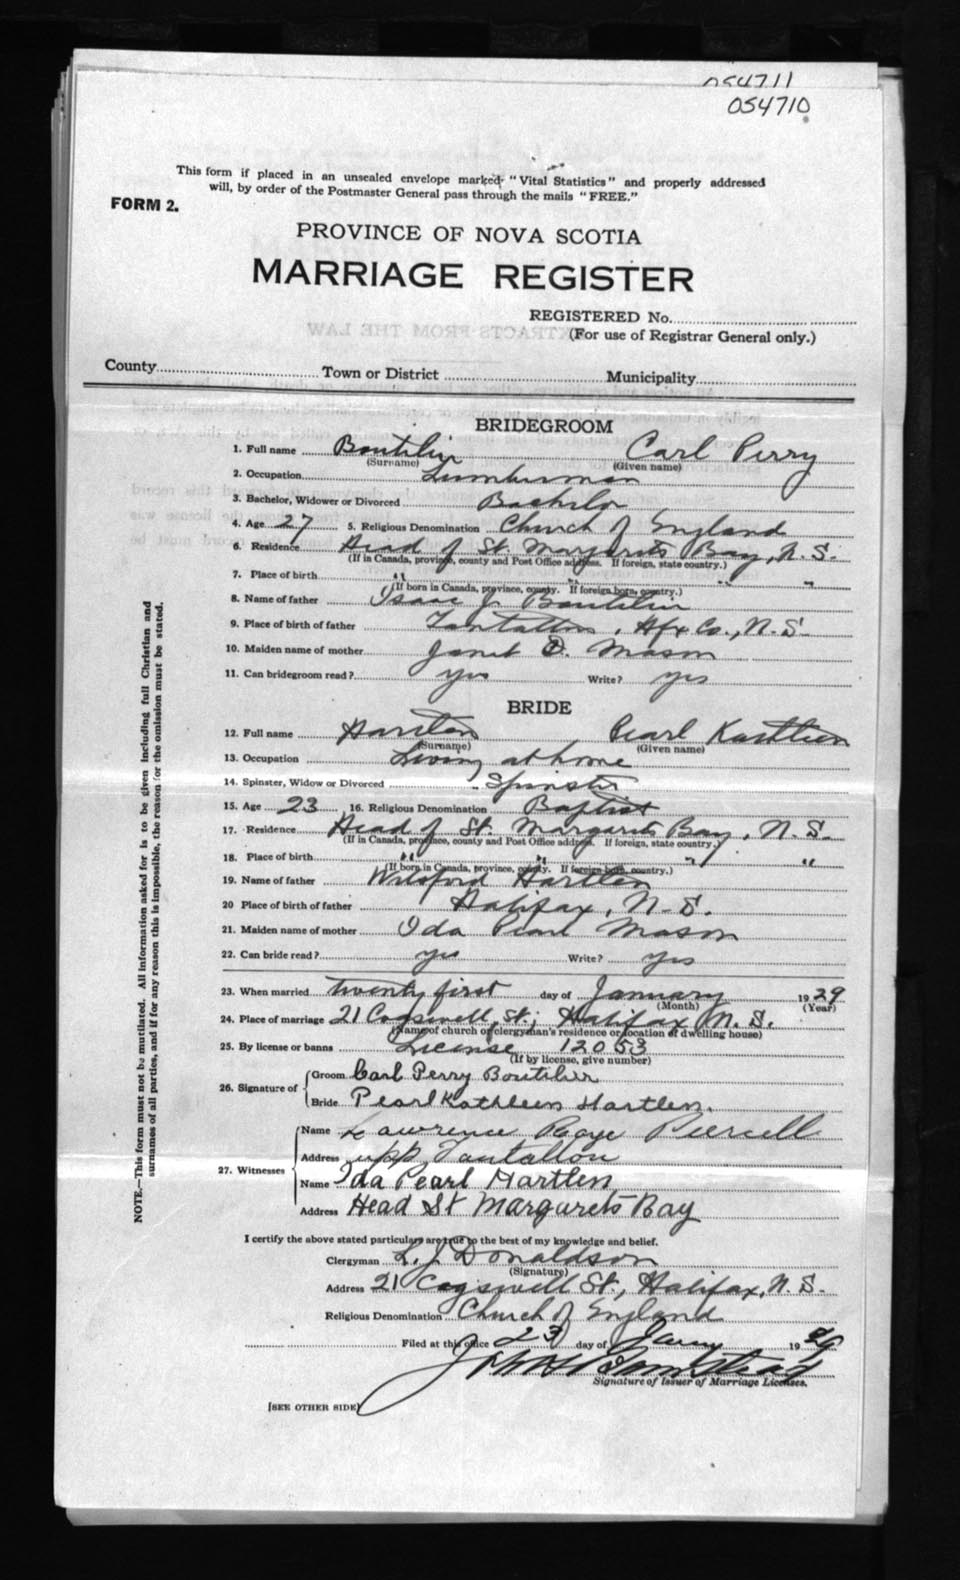 054711
054710
This form if placed in an unsealed envelope marked "Vital Statistics" and properly addressed
will, by order of the Postmaster General pass through the mails "FREE."
FORM 2.
PROVINCE OF NOVA SCOTIA
MARRIAGE REGISTER
REGISTERED No.
(For use of Registrar General only.)
County Town or District Municipality
BRIDEGROOM
1. Full name Boutilier Carl Perry
(Surname) (Given name)
2. Occupation Lumberman
3. Bachelor, Widower or Divorced Bachelor
4. Age 27 5. Religious Denomination Church of England
6. Residence Head of St. Margarets Bay, N.S.
(If in Canada, province, county and Post Office address. If foreign, state country.)
7. Place of birth " " " "
(If born in Canada, province, county. If foreign born, country.)
8. Name of father Isaac J. Boutilier
9. Place of birth of father Tantallon, Hfx Co., N.S.
10. Maiden name of mother Janet O. Mason
11. Can bridegroom read? yes Write? yes
BRIDE
12. Full name Hartlen Pearl Kathleen
(Surname) (Given name)
13. Occupation Living at home
14. Spinster, Widow or Divorced Spinster
15. Age 23 16. Religious Denomination Baptist
17. Residence Head of St. Margarets Bay, N.S.
(If in Canada, province, county and Post Office address. If foreign, state country.)
18. Place of birth " " " "
(If born in Canada, province, county. If foreign born, country.)
19. Name of father Hartlen
20 Place of birth of father Halifax, N.S.
21. Maiden name of mother Ida Pearl Mason
22. Can bride read? yes Write? yes
23. When married twenty first day of January 1929
(Month) (Year)
24. Place of marriage 21 Cogswell St., Halifax N.S.
(Name of church or clergyman's residence or location of dwelling house)
25. By license or banns License 12053
(If by license, give number)
26. Signature of Groom Carl Perry Boutilier
Bride Pearl Kathleen Hartlen.
27. Witnesses Name Lawrence Roye Piercell
Address upp Tantallon
Name Ida Pearl Hartlen
Address Head St Margarets Bay
I certify the above stated particulars are true to the best of my knowledge and belief.
Clergyman L. J. Donaldson
(Signature)
Address 21 Cogswell St., Halifax, N.S.
Religious Denomination Church of England
Filed at this office 23 day of Jany 1929
Signature of Issuer of Marriage Licenses.
[SEE OTHER SIDE]
NOTE.—This form must not be mutilated. All information asked for is to be given including full Christian and
surnames of all parties, and if for any reason this is impossible, the reason for the omission must be stated.